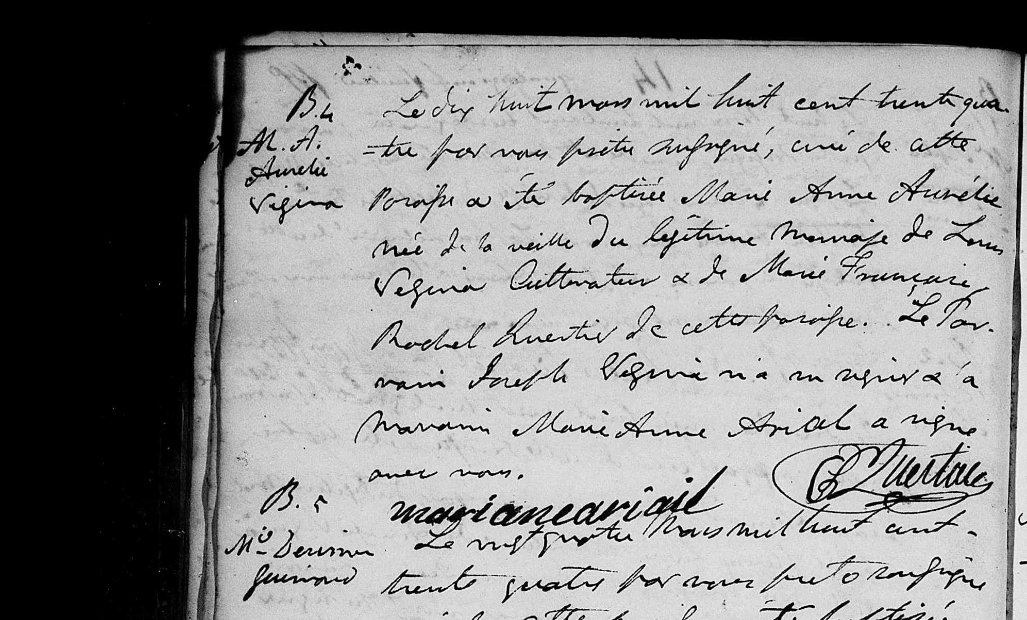 B. 4
M. A.
Aurélie
Vezina
Le dix huit mars mil huit cent trente qua-
=tre par nous prêtre soussigné, curé de cette
Paroisse a été baptisée Marie Anne Aurélie
née de la veille du légitime mariage de Louis
Vezina Cultivateur & de Marie Françoise
Rachel de cette paroisse. Le Par-
rain Joseph Vezina n'a su signer & la
Marraine Marie Anne Arial a signé
avec nous.
mariane ariail
B. 5
Guimond
Le vingt quatre mars mil huit cent-
trente quatre par nous prêtre soussigné